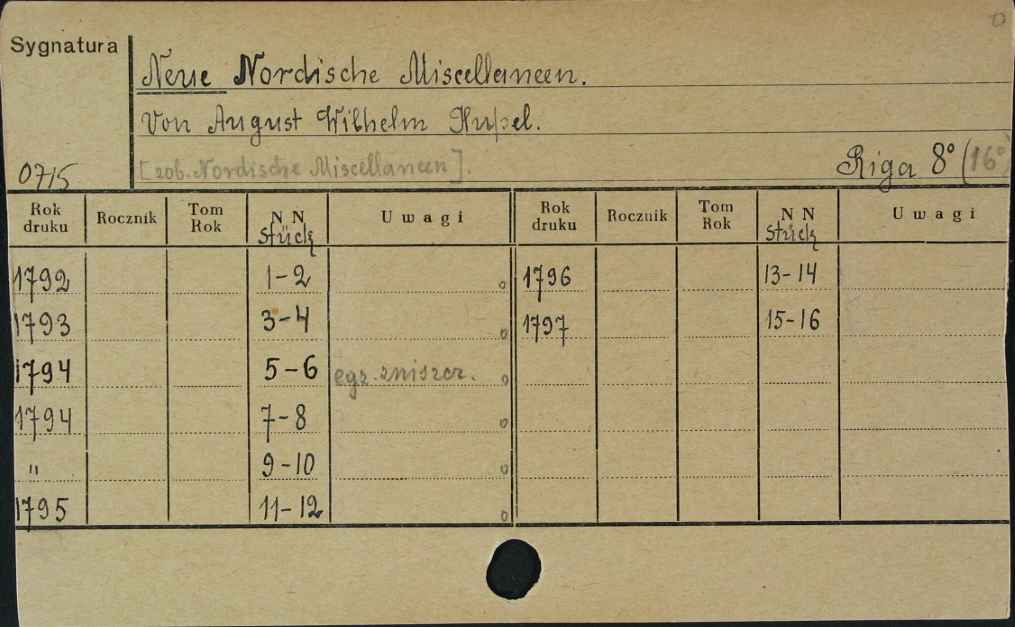 0
Sygnatura
Neue Nordische Miscellaneen.
Von August Wilhelm Hupel.
0715
[zob. Nordische Miscellaneen].
Riga 8° (16°)
Rok druku Rocznik Tom Rok NN Stück Uwagi Rok druku Rocznik Tom Rok NN Stück Uwagi
1792 1-2 o 1796 13-14
1793 3-4 o 1797 15-16
1794 5-6 egz. zniszcz. o
1794 7-8 o
" 9-10 o
1795 11-12 o